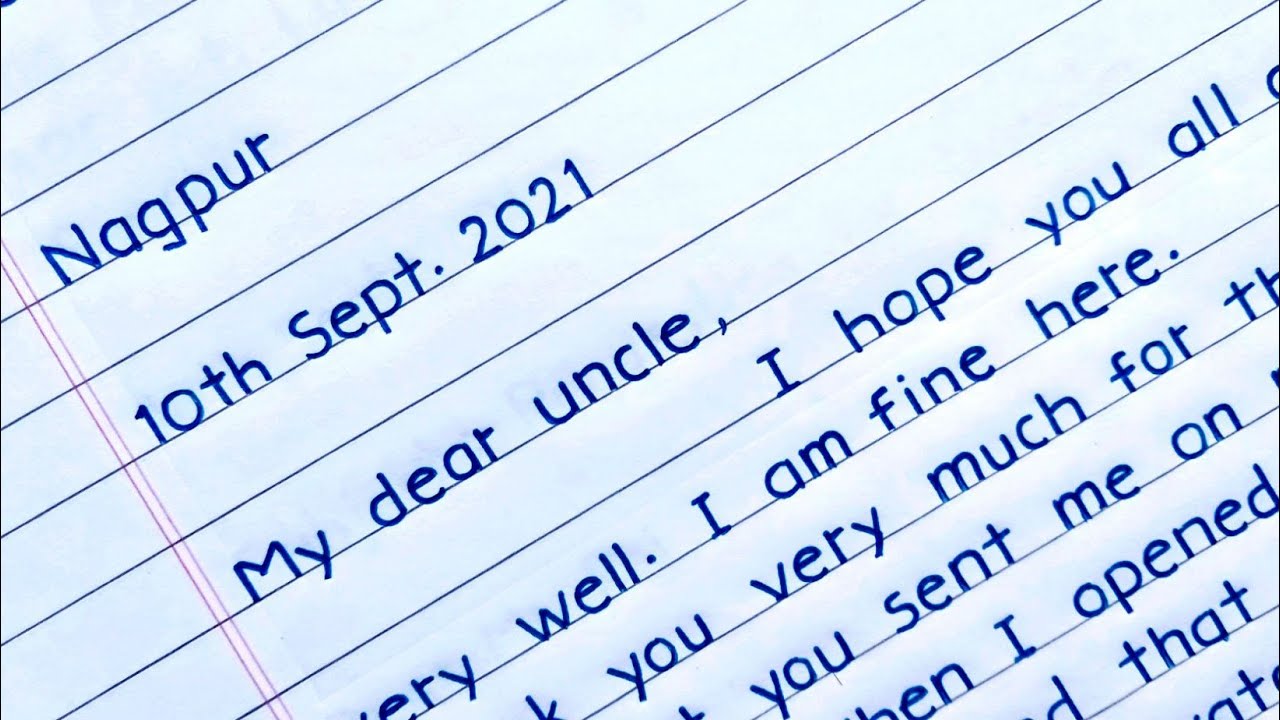 Nagpur
10th Sept. 2021
My dear uncle,
I hope you all
well. I am fine here.
you very much for
you sent me on
I opened
that